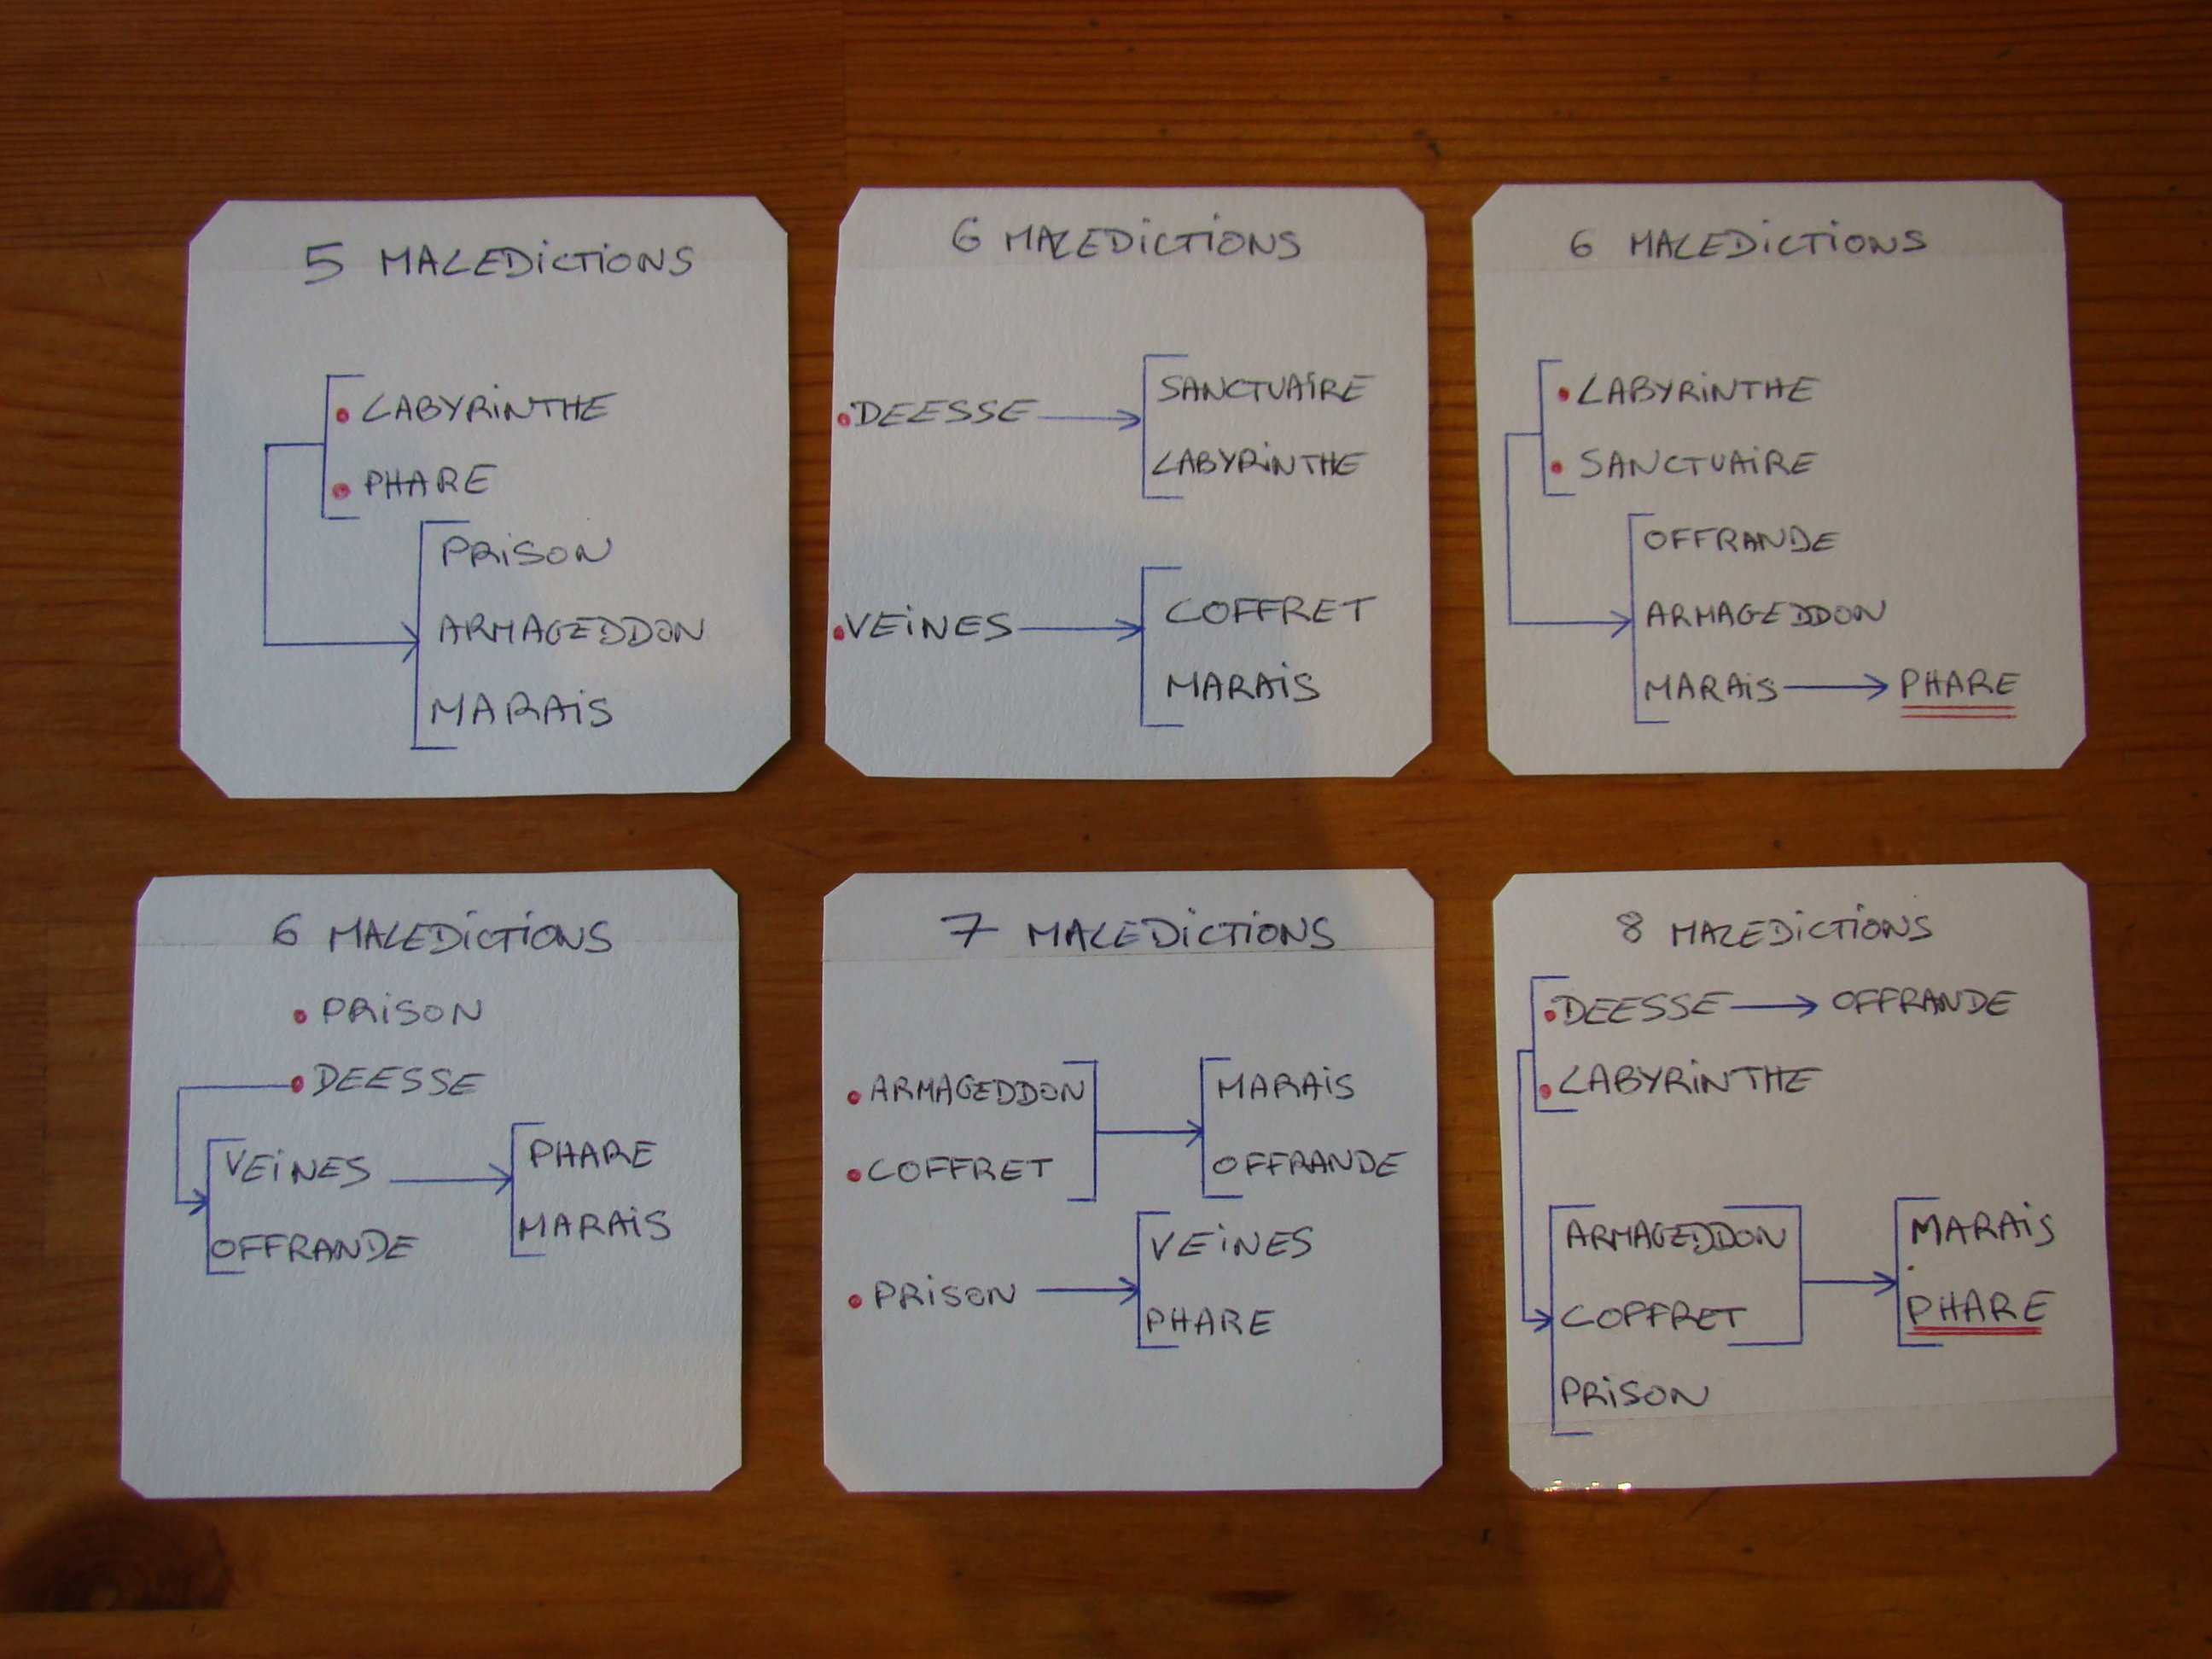 5 MALEDiCTiONS
LABYRiNTHE
PHARE
PRiSON
ARMAGEDDON
MARAiS
6 MALEDiCTiONS
DEESSE
SANCTUAiRE
LABYRiNTHE
VEiNES
COFFRET
MARAiS
6 MALEDiCTiONS
LABYRiNTHE
SANCTUAiRE
OFFRANDE
ARMAGEDDON
MARAiS → PHARE
6 MALEDiCTiONS
PRiSON
DEESSE
VEiNES
OFFRANDE
PHARE
MARAiS
7 MALEDiCTiONS
ARMAGEDDON
COFFRET
MARAiS
OFFRANDE
PRiSON
VEiNES
PHARE
8 MALEDiCTiONS
DEESSE → OFFRANDE
LABYRiNTHE
ARMAGEDDON
COFFRET
PRiSON
MARAiS
PHARE